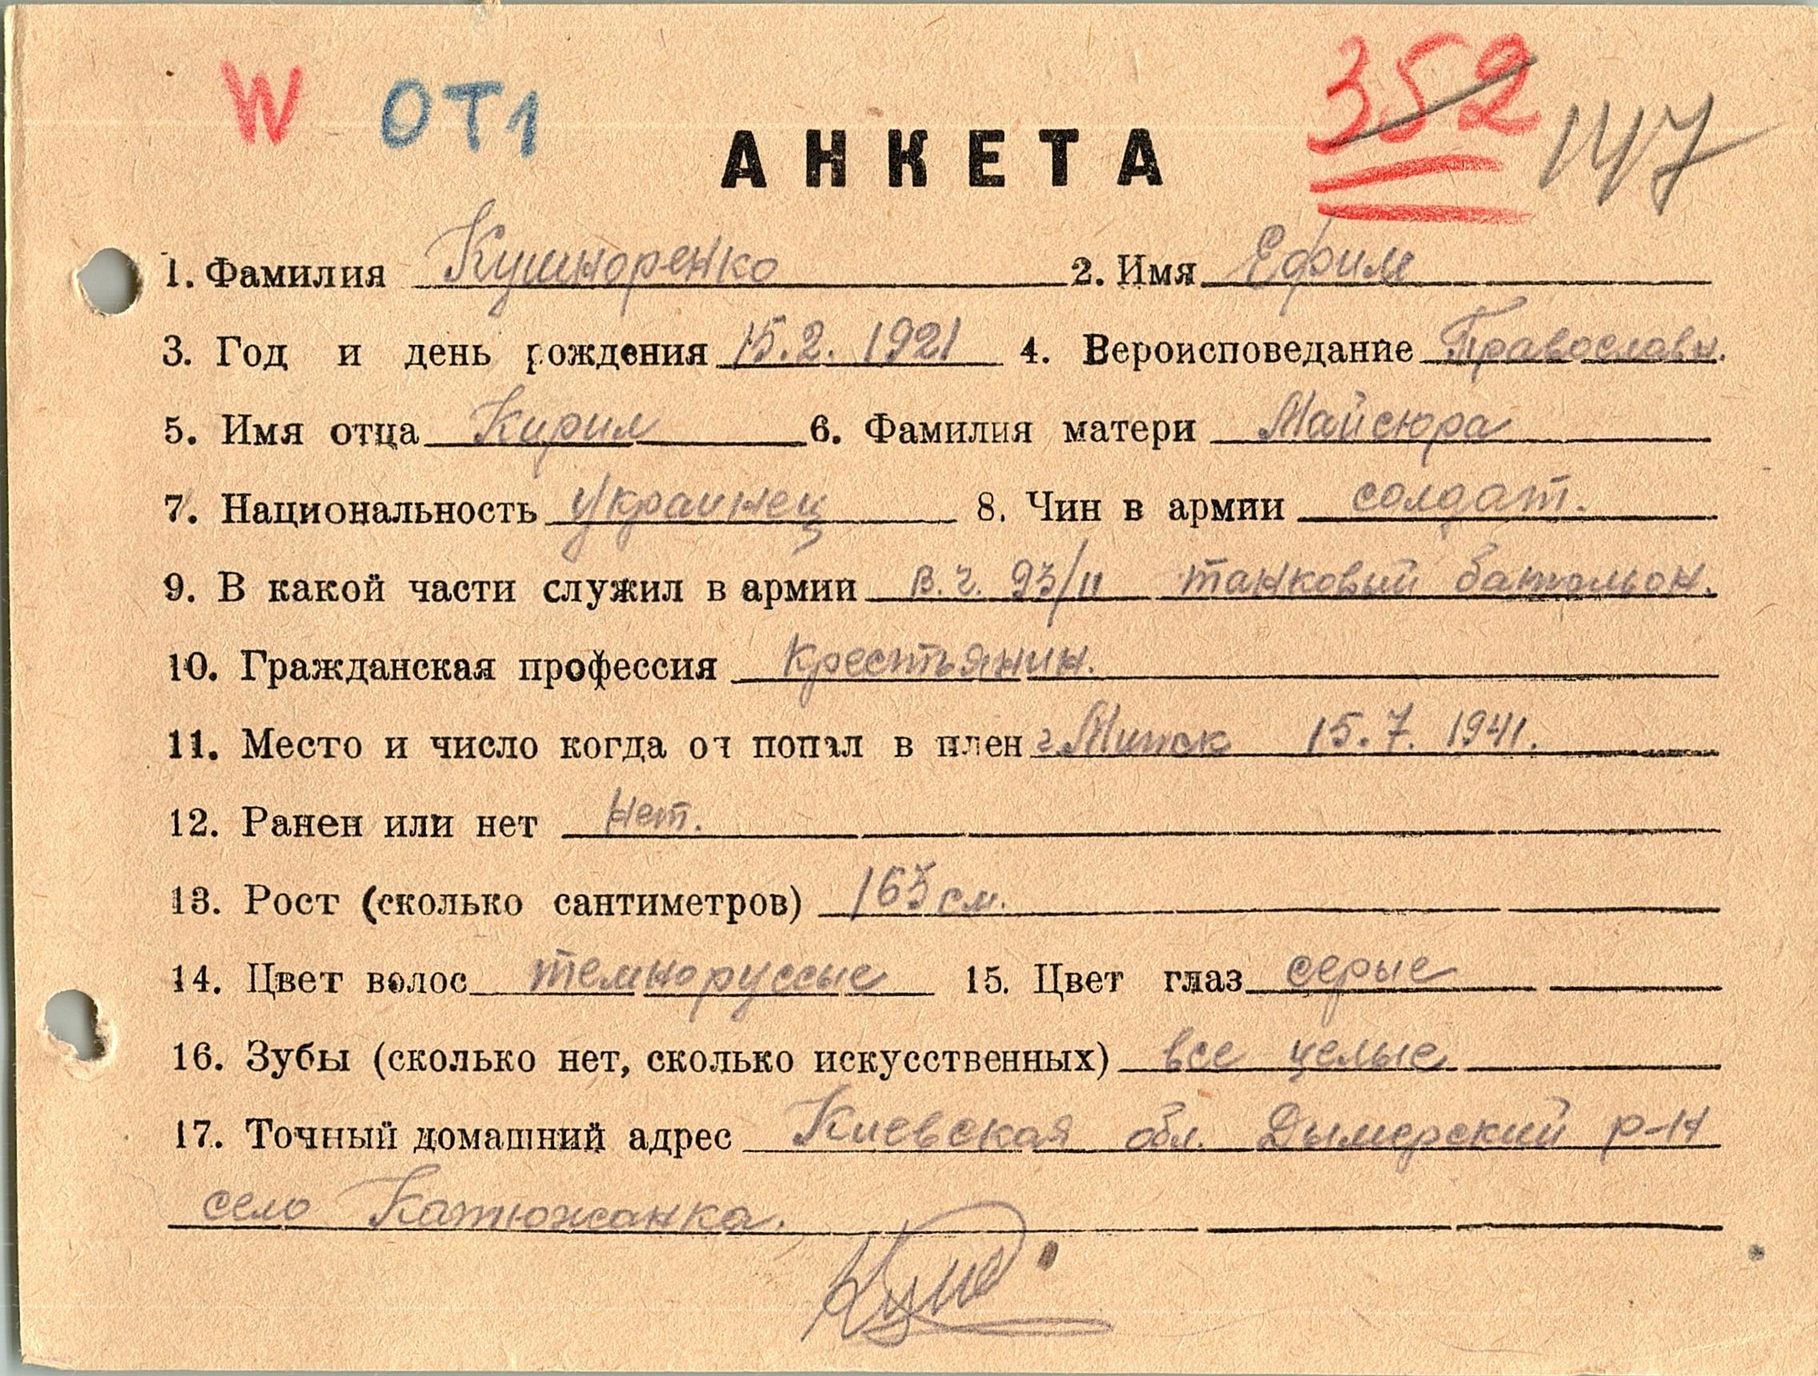 W ОТ1 352 147
АНКЕТА
1. Фамилия Кушноренко 2. Имя Ефим
3. Год и день рождения 15.2. 1921 4. Вероисповедание Православн.
5. Имя отца Кирил 6. Фамилия матери Майсюра
7. Национальность Украинец 8. Чин в армии солдат.
9. В какой части служил в армии в.ч. 93/II танковый батальон.
10. Гражданская профессия Крестьянин.
11. Место и число когда он попал в плен г Минск 15.7. 1941.
12. Ранен или нет Нет.
13. Рост (сколько сантиметров) 163 см.
14. Цвет волос темноруссые 15. Цвет глаз серые
16. Зубы (сколько нет, сколько искусственных) все целые
17. Точный домашний адрес Киевская обл. Дымерский р-н
село Катюжанка.